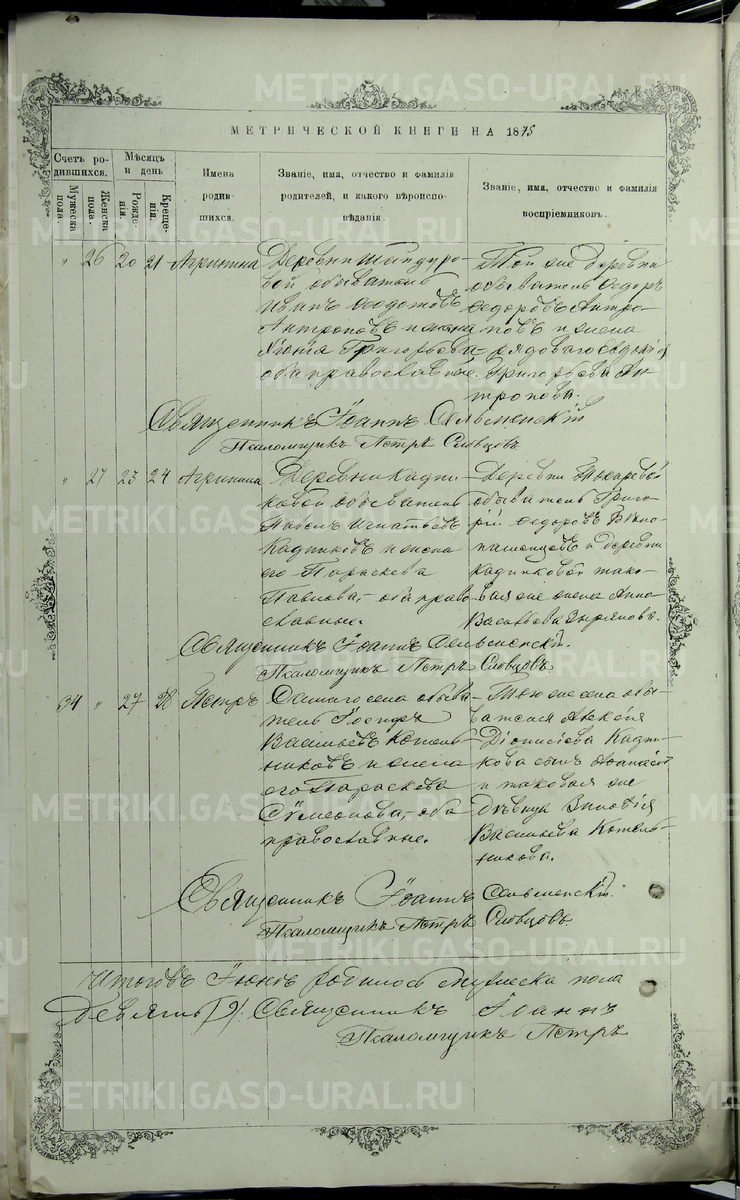 МЕТРИЧЕСКОЙ КНИГИ НА 1875
Счетъ родившихся.
Мужеска пола.
Женска пола.
Мѣсяцъ и день
Рожденія.
Крещенія.
Имена родившихся.
Званіе, имя, отчество и фамилія родителей, и какого вѣроисповѣданія.
Званіе, имя, отчество и фамилія воспріемниковъ.
" 26 20 21 Агрипина
Деревни
обыватель
Иванъ Ѳедотовъ
Антроповъ и жена
Григорьева
оба православные.
Той же деревни
обыватель Ѳедоръ
Ѳедоровъ Антро-
повъ и жена
рядоваго
Григорьева Ан-
тропова.
Священникъ Іоаннъ
Псаломщикъ Петръ Словцовъ
" 27 23 24 Агрипина
Деревни Кадни-
ковой обыватель
Павелъ Игнатьевъ
Кадниковъ и жена
его Параскева
Павлова, оба право-
славные.
Деревни Токаревой
обыватель Григо-
рій Ѳедоровъ Бѣло-
пашенцовъ и деревни
Кадниковой тако-
ваяже жена Анна
Васильева
Священникъ Іоаннъ
Псаломщикъ Петръ Словцовъ.
34 " 27 28 Петръ
обыва-
тель
Васильевъ Котель-
никовъ и жена
его Параскева
Сѵмеонова, оба
православные.
Того же села обы-
вателя Алексія
Діонисіева Кадни-
кова сынъ Аѳанасій
и таковая же
дѣвица
Васильева Котель-
никова.
Священникъ Іоаннъ
Псаломщикъ Петръ Словцовъ
Итого въ Іюнѣ родилось мужеска пола
Девять /9/. Священникъ Іоаннъ
Псаломщикъ Петръ
METRIKI.GASO-URAL.RU